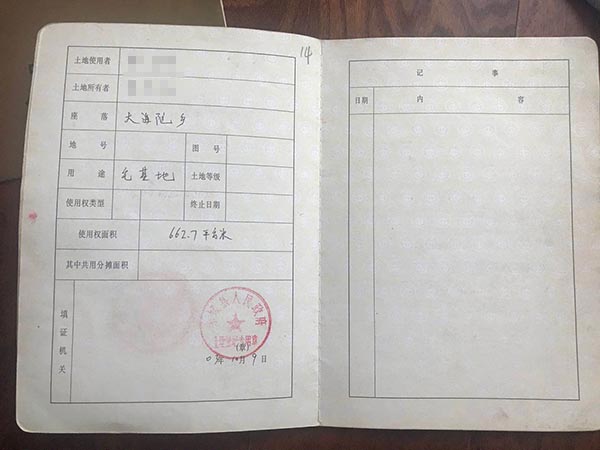 14
土地使用者
土地所有者
座 落 大海陀乡
地 号 图 号
用 途 宅基地 土地等级
使用权类型 终止日期
使用权面积 662.7平方米
其中共用分摊面积
填证机关
县人民政府
(章)
年10月9日
记 事
日期 内 容